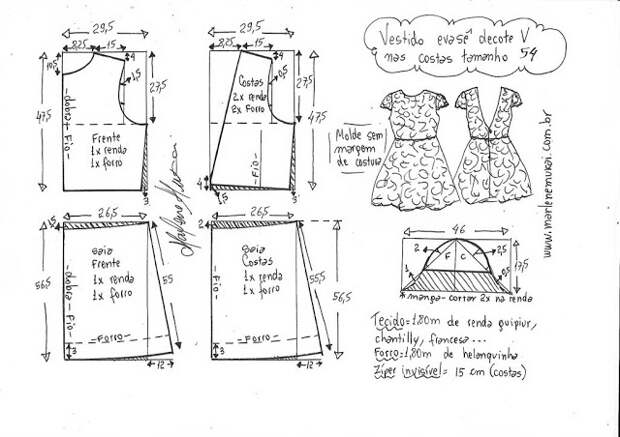 Vestido evasê decote V
nas costas tamanho 54
29,5
8,25
15
4
10,5
1,5
27,5
47,5
dobra + Fio
Frente
1x renda
1x forro
3
29,5
8,25
15
4
0,5
27,5
47,5
Costas
2x renda
2x forro
Fio
4
1,5
3
Molde sem
margem
de costura
www.marlenemukai.com.br
26,5
56,5
dobra + Fio
saia
Frente
1x renda
1x forro
55
Forro
3
12
26,5
2
Fio
saia
Costas
1x renda
1x forro
55,5
56,5
Forro
3
12
46
2
F
C
2,5
1
0,5
17,5
* manga - cortar 2x na renda
Tecido=1,80m de renda guipiur,
chantilly, francesa...
Forro=1,80m de helanquinha
Zíper invisível= 15 cm (costas)